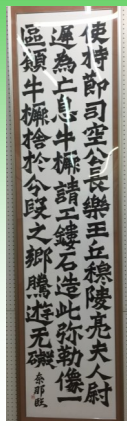 使持節司空公長樂王丘穆陵亮夫人尉
遲為亡息牛橛請工鏤石造此弥勒像一
區願牛橛捨於分段之鄉騰遊无礙